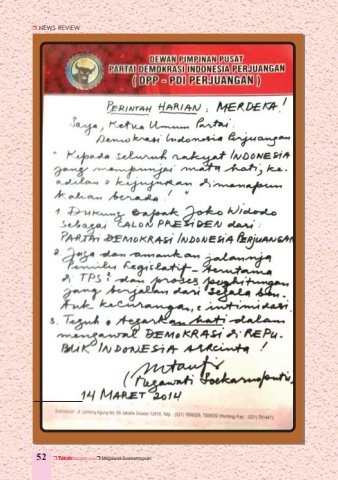 NEWS REVIEW
DEWAN PIMPINAN PUSAT
PARTAI DEMOKRASI INDONESIA PERJUANGAN
( DPP - PDI PERJUANGAN )
PERINTAH HARIAN : MERDEKA !
Saya, Ketua Umum Partai
Demokrasi Indonesia Perjuangan
" Kepada seluruh rakyat INDONESIA
yang mempunyai mata hati, ke-
adilan & kejujuran dimanapun
kalian berada ! "
1. Dukung Bapak Joko Widodo
sebagai CALON PRESIDEN dari
PARTAI DEMOKRASI INDONESIA PERJUANGAN
2. Jaga dan amankan jalannya
Pemilu Legislatif terutama
di TPS² dan proses penghitungan
yang berjalan dari segala ben-
tuk kecurangan, & intimidasi
3. Teguh & tegarkan hati dalam
mengawal DEMOKRASI di REPU-
BLIK INDONESIA tercinta !
( Megawati Soekarnoputri
14 MARET 2014
Sekretariat : Jl. Lenteng Agung No. 99 Jakarta Selatan 12610, Telp. : (021) 7806028, 7806032 (Hunting) Fax. : (021) 7814472
52 Tokoh Megawati Soekarnoputri